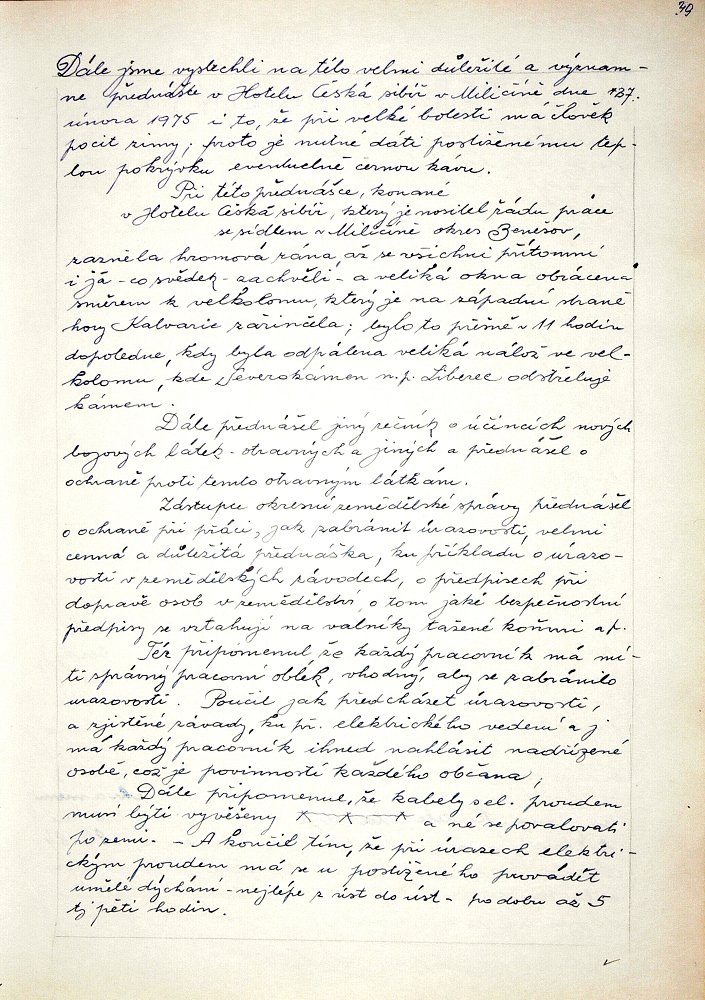 39
Dále jsme vyslechli na této velmi důležité a význam-
né přednášce v Hotelu Česká sibiř v Miličíně dne 27.
února 1975 i to, že při velké bolesti má člověk
pocit zimy; proto je nutné dáti postiženému tep-
lou pokrývku eventuelně černou kávu.
Při této přednášce, konané
v Hotelu Česká sibiř, který je nositel řádu práce
se sídlem v Miličíně okres Benešov,
zazněla hromová rána, až se všichni přítomní
i já - co svědek - zachvěli - a veliká okna obrácená
směrem k velkolomu, který je na západní straně
hory Kalvarie zařinčela; bylo to přesně v 11 hodin
dopoledne, kdy byla odpálena veliká nálož ve vel-
kolomu, kde Severokámen n.p. Liberec odstřeluje
kámen.
Dále přednášel jiný řečník o účincích nových
bojových látek - otravných a jiných a přednášel o
ochraně proti temto otravným látkám.
Zástupce okresní zemědělské správy přednášel
o ochraně při práci, jak zabránit úrazovosti, velmi
cenná a důležitá přednáška, ku příkladu o úrazo-
vosti v zemědělských závodech, o předpisech při
dopravě osob v zemědělství, o tom jaké bezpečnostní
předpisy se vztahují na valníky tažené koňmi a p.
Též připomenul, že každý pracovník má mí-
ti správný pracovní oblek, vhodný, aby se zabránilo
úrazovosti. Poučil jak předcházet úrazovosti,
a zjistěné závady, ku př. elektrického vedení a j
má každý pracovník ihned nahlásit nadřízené
osobě, což je povinností každého občana;
Dále připomenul, že kabely s el. proudem
musí býti vyvěšeny a né se povalovati
po zemi. - A končil tím, že při úrazech elektri-
ckým proudem má se u postiženého provádět
umělé dýchání - nejlépe z úst do úst - po dobu až 5
tj pěti hodin.